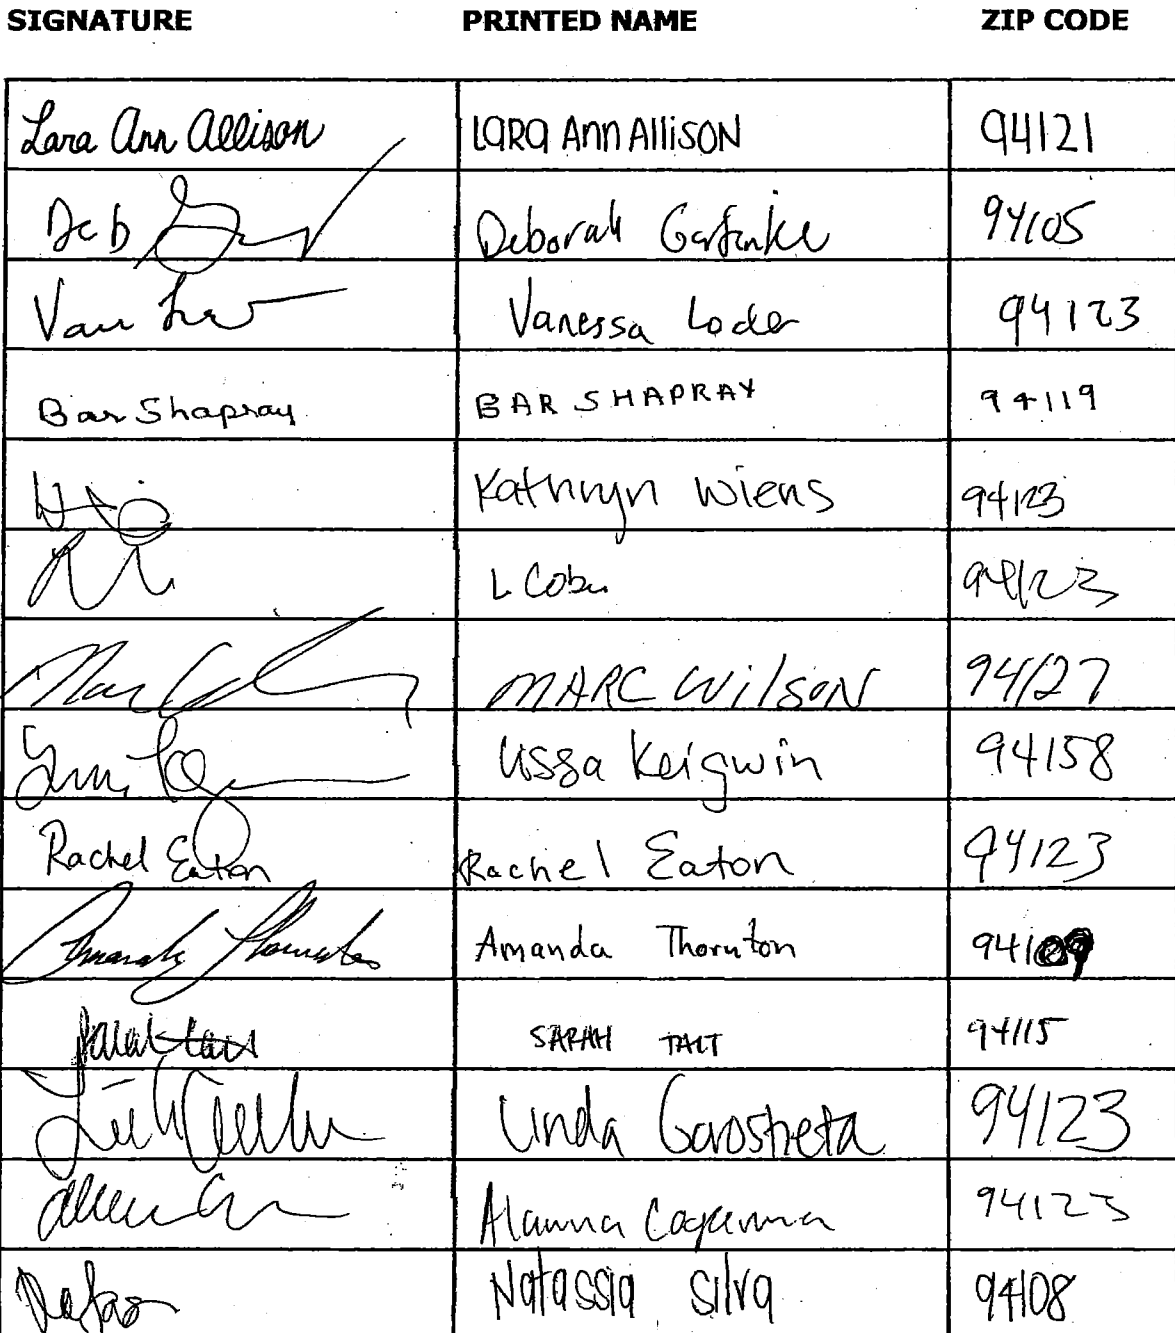 SIGNATURE PRINTED NAME ZIP CODE
Lara Ann Allison LARA Ann Allison 94121
Deb Deborah Garfinkle 94105
Van Vanessa Loder 94123
Bar Shapray BAR SHAPRAY 94119
Kathryn Wiens 94123
L Cobu 94123
MARC WILSON 94127
Lissa Keigwin 94158
Rachel Eaton Rachel Eaton 94123
Amanda Thornton Amanda Thornton 94109
Sarah Tait SARAH TAIT 94115
Linda 94123
Alanna 94123
Natassia Silva 94108